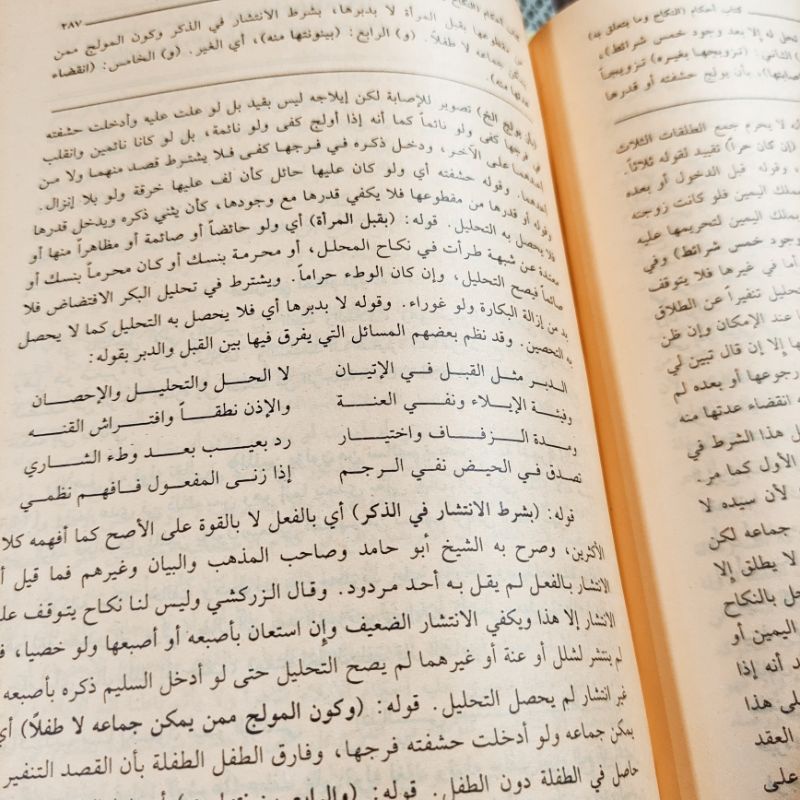 كتاب أحكام (النكاح وما يتعلق به)
تحل له إلا بعد وجود خمس شرائط)،
الثاني: (تزويجها بغيره) تزويجاً
بأن يولج حشفته أو قدرها
لا يحرم جمع الطلقات الثلاث
(إن كان حراً) تقييد لقوله ثلاثاً.
وقوله قبل الدخول أو بعده
بملك اليمين فلو كانت زوجته
بملك اليمين لتحريمها عليه
وجود خمس شرائط) وفي
أما في غيرها فلا يتوقف
تحليل تنفيراً عن الطلاق
عند الإمكان وإن ظن
إلا إن قال تبين لي
رجوعها أو بعده لم
انقضاء عدتها منه
هذا الشرط في
الأول كما مر.
لأن سيده لا
جماعه لكن
لا يطلق إلا
بالنكاح
اليمين أو
أنه إذا
على هذا
العقد
على
٢٨٧
بقبل المرأة لا بدبرها، بشرط الانتشار في الذكر وكون المولج ممن
يمكن جماعه لا طفلاً. (و) الرابع: (بينونتها منه)، أي الغير. (و) الخامس: (انقضاء
عدتها منه)
(بأن يولج الخ) تصوير للإصابة لكن إيلاجه ليس بقيد بل لو علت عليه وأدخلت حشفته
في فرجها كفى ولو نائماً كما أنه إذا أولج كفى ولو نائمة، بل لو كانا نائمين وانقلب
أحدهما على الآخر، ودخل ذكره في فرجها كفى فلا يشترط قصد منهما ولا من
أحدهما. وقوله حشفته أي ولو كان عليها حائل كأن لف عليها خرقة ولو بلا إنزال.
وقوله أو قدرها من مقطوعها فلا يكفي قدرها مع وجودها، كأن يثني ذكره ويدخل قدرها
فلا يحصل به التحليل. قوله: (بقبل المرأة) أي ولو حائضاً أو صائمة أو مظاهراً منها أو
معتدة عن شبهة طرأت في نكاح المحلل، أو محرمة بنسك أو كان محرماً بنسك أو
صائماً فيصح التحليل، وإن كان الوطء حراماً. ويشترط في تحليل البكر الافتضاض فلا
بد من إزالة البكارة ولو غوراء. وقوله لا بدبرها أي فلا يحصل به التحليل كما لا يحصل
به التحصين. وقد نظم بعضهم المسائل التي يفرق فيها بين القبل والدبر بقوله:
الدبر مثل القبل في الإتيان لا الحل والتحليل والإحصان
وفيئة الإيلاء ونفي العنة والإذن نطقاً وافتراش القنه
ومدة الزفاف واختيار رد بعيب بعد وطء الشاري
تصدق في الحيض نفي الرجم إذا زنى المفعول فافهم نظمي
قوله: (بشرط الانتشار في الذكر) أي بالفعل لا بالقوة على الأصح كما أفهمه
الأكثرين، وصرح به الشيخ أبو حامد وصاحب المذهب والبيان وغيرهم فما قيل
الانتشار بالفعل لم يقل به أحد مردود. وقال الزركشي وليس لنا نكاح يتوقف
الانتشار إلا هذا ويكفي الانتشار الضعيف وإن استعان بأصبعه أو أصبعها ولو خصيا،
لم ينتشر لشلل أو عنة أو غيرهما لم يصح التحليل حتى لو أدخل السليم ذكره بأصبعه
غير انتشار لم يحصل التحليل. قوله: (وكون المولج ممن يمكن جماعه لا طفلاً)
يمكن جماعه ولو أدخلت حشفته فرجها، وفارق الطفل الطفلة بأن القصد التنفير
حاصل في الطفلة دون الطفل. قوله: